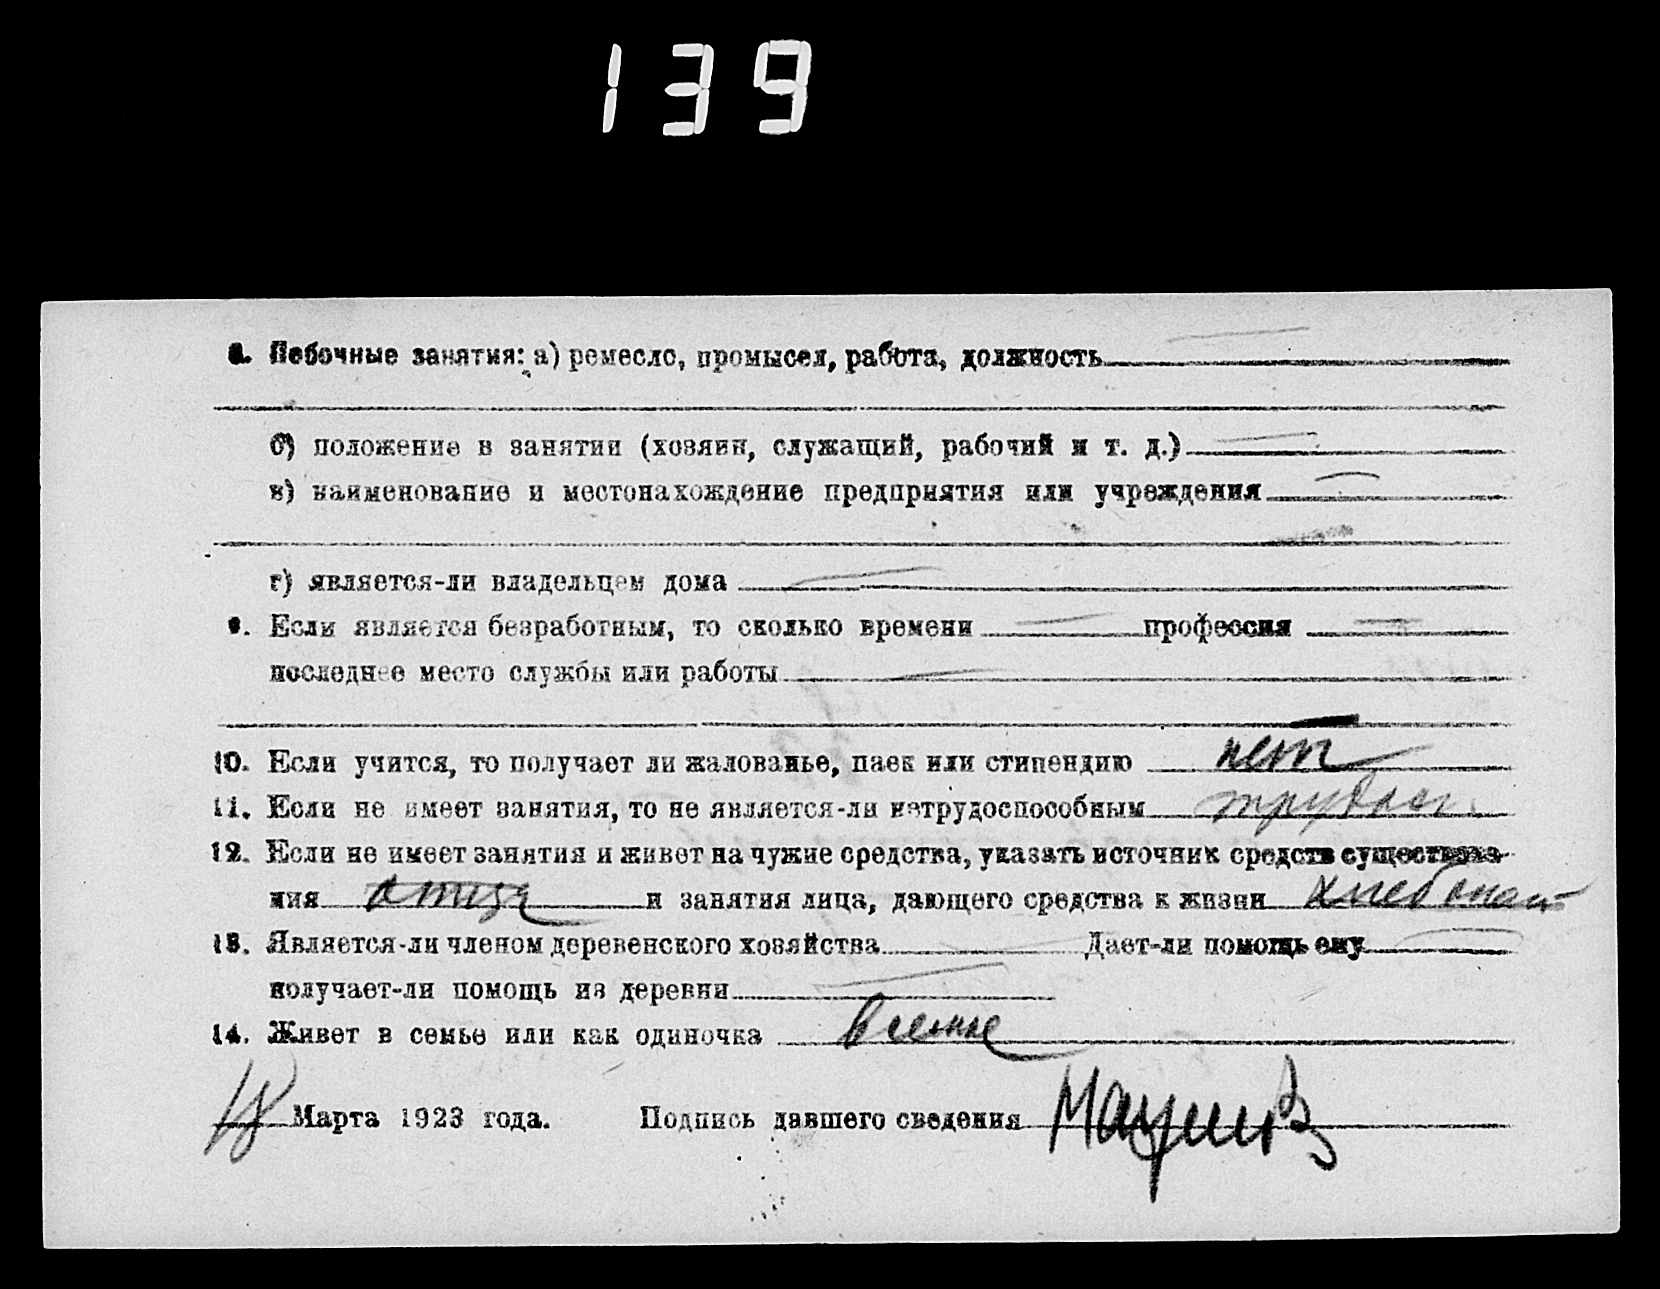 139
8. Побочные занятия: а) ремесло, промысел, работа, должность
б) положение в занятии (хозяин, служащий, рабочий и т. д.)
в) наименование и местонахождение предприятия или учреждения
г) является-ли владельцем дома
9. Если является безработным, то сколько времени профессия
последнее место службы или работы
10. Если учится, то получает ли жалованье, паек или стипендию нет
11. Если не имеет занятия, то не является-ли нетрудоспособным трудосп.
12. Если не имеет занятия и живет на чужие средства, указать источник средств существова-
ния отца и занятия лица, дающего средства к жизни
13. Является-ли членом деревенского хозяйства Дает-ли помощь ему
получает-ли помощь из деревни
14. Живет в семье или как одиночка в семье
18 Марта 1923 года. Подпись давшего сведения